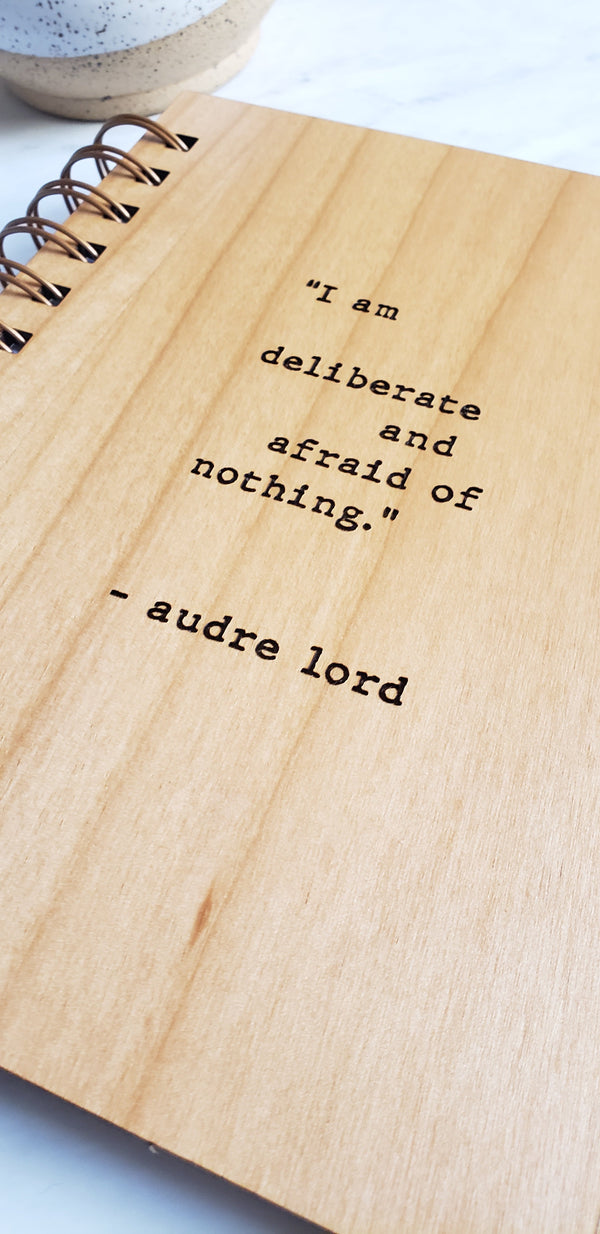 "I am
deliberate
and
afraid of
nothing."
- audre lord